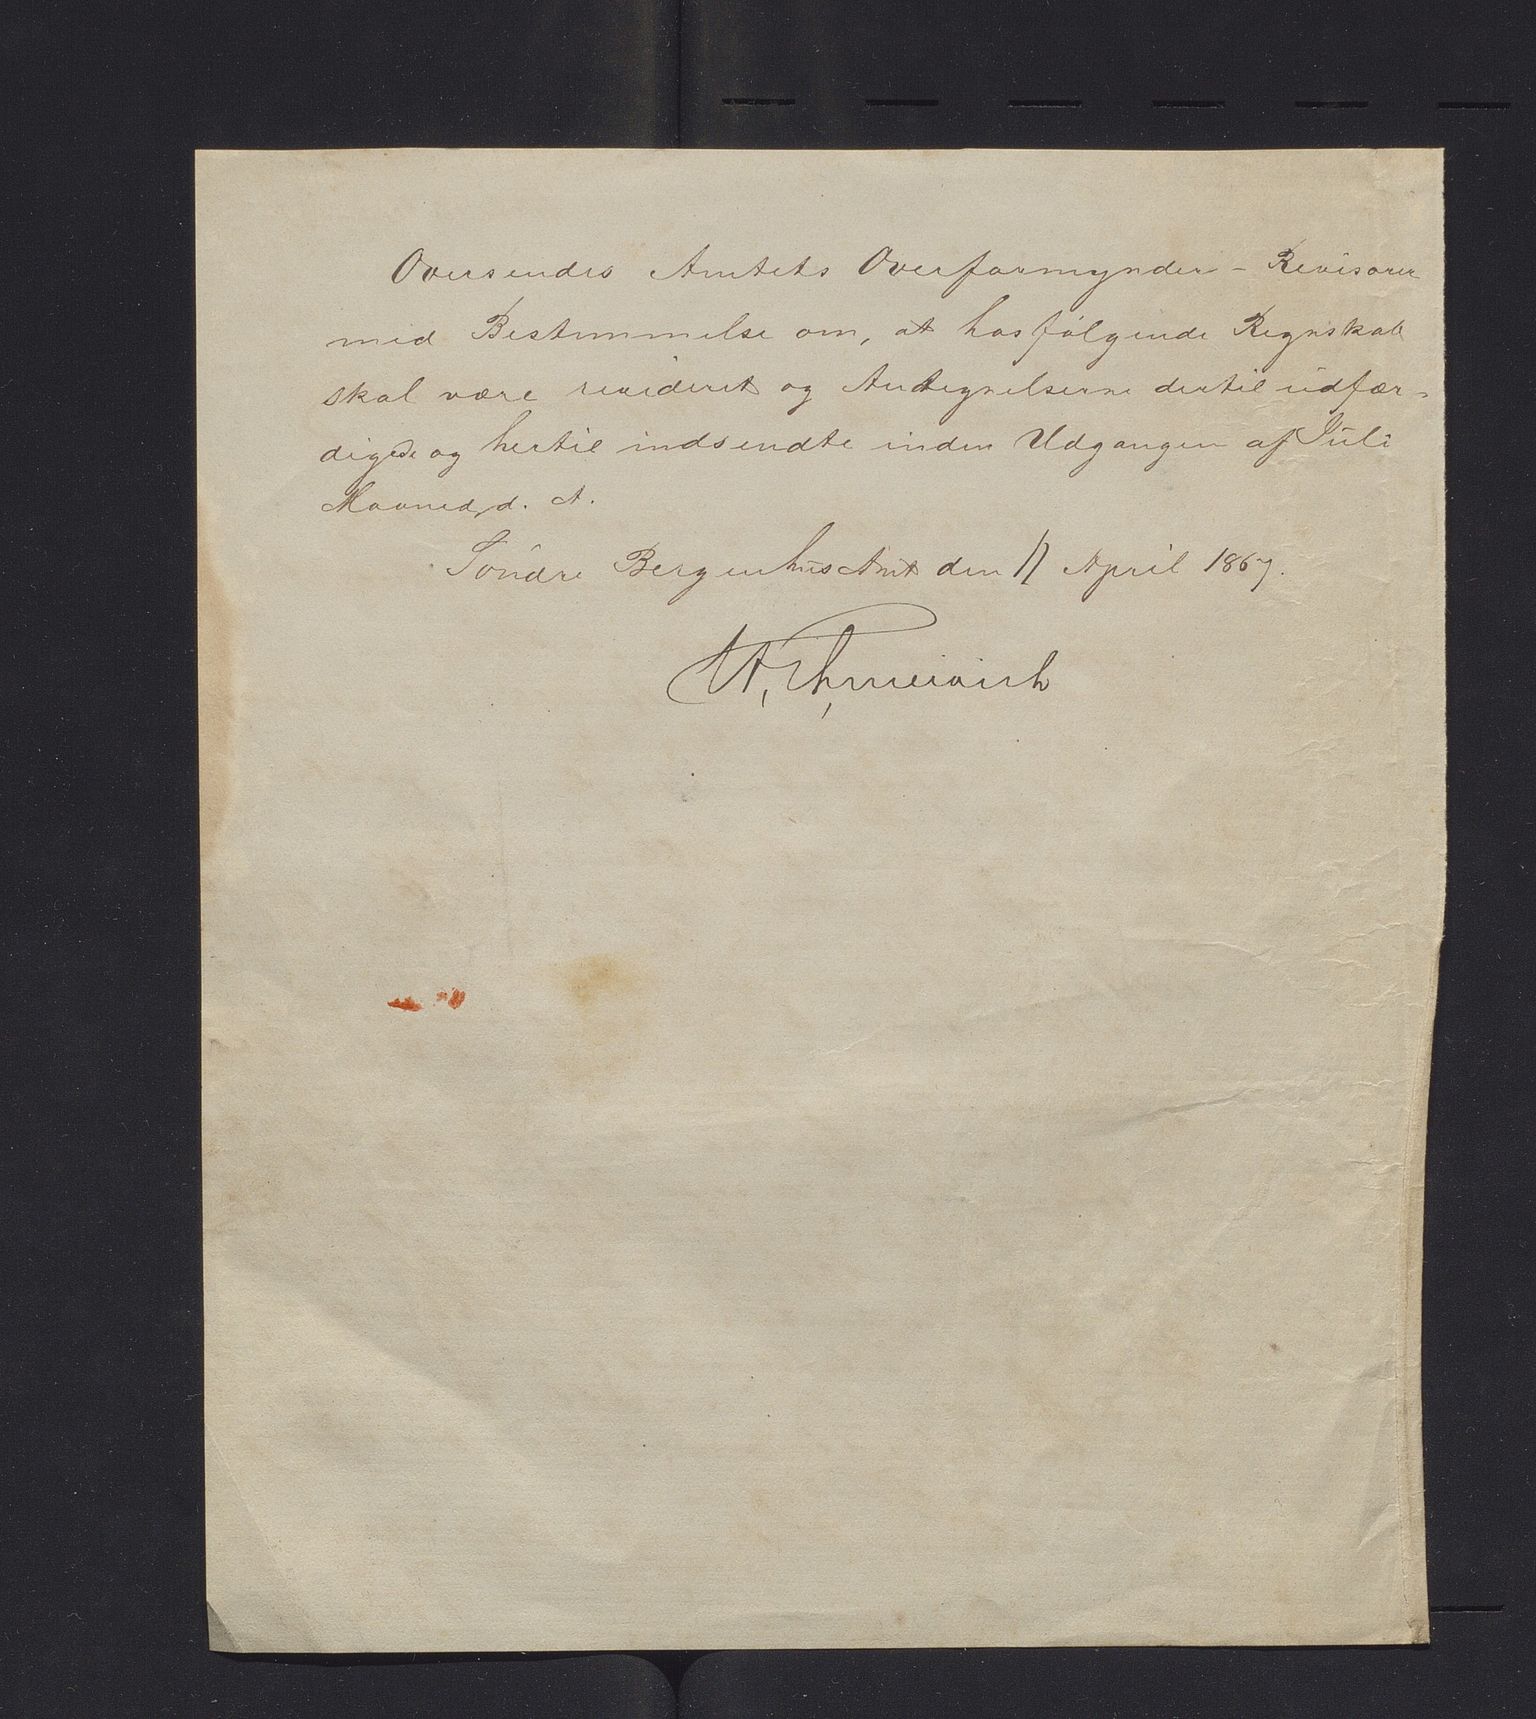 Oversendes Amtets Overformynder-Revisorer
med Bestemmelse om, at hosfølgende Regnskab
skal være revideret og Antegnelserne dertil udfær-
digede og hertil indsendte inden Udgangen af Juli
Maaned d. A.
Søndre Bergenhus Amt den 17 April 1867.